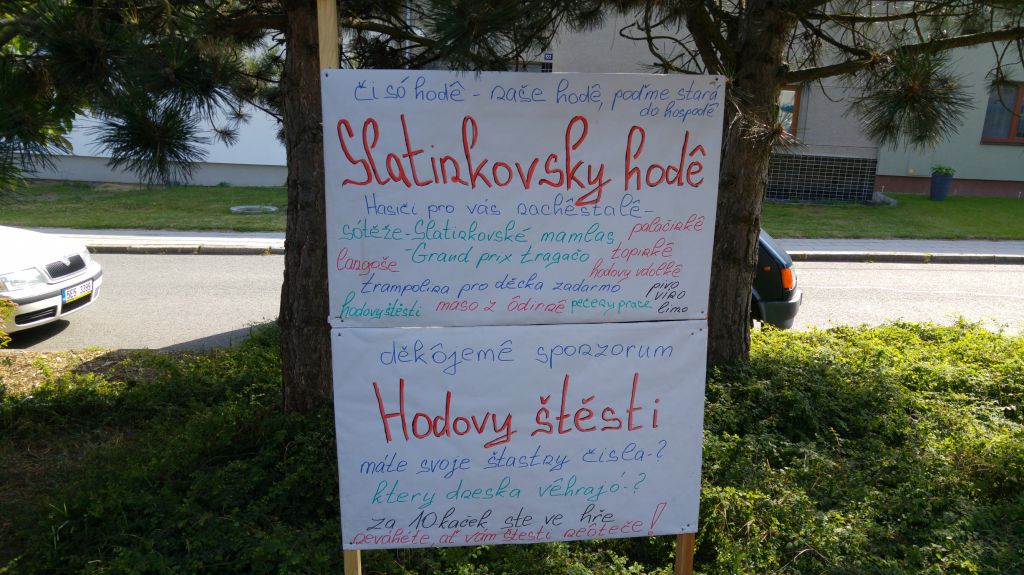 či só hodê - naše hodê, poďme stará
do hospodê
Slatinkovsky hodê
Hasiči pro vás nachêstalê -
sótěže - Slatinkovské mamlas
palačinkê
langoše
Grand prix tragačo
topinkê
hodovy vdolkê
trampolina pro děcka zadarmó
pivo
vino
limo
hodovy štěsti
maso z ôdirnê
pečeny prace
děkôjemê sponzorum
Hodovy štěsti
máte svoje šťastny čisla-?
ktery dneska vêhrajó-?
za 10 kaček ste ve hře
neváhéte, ať vám štesti neôteče!
5E5 3395